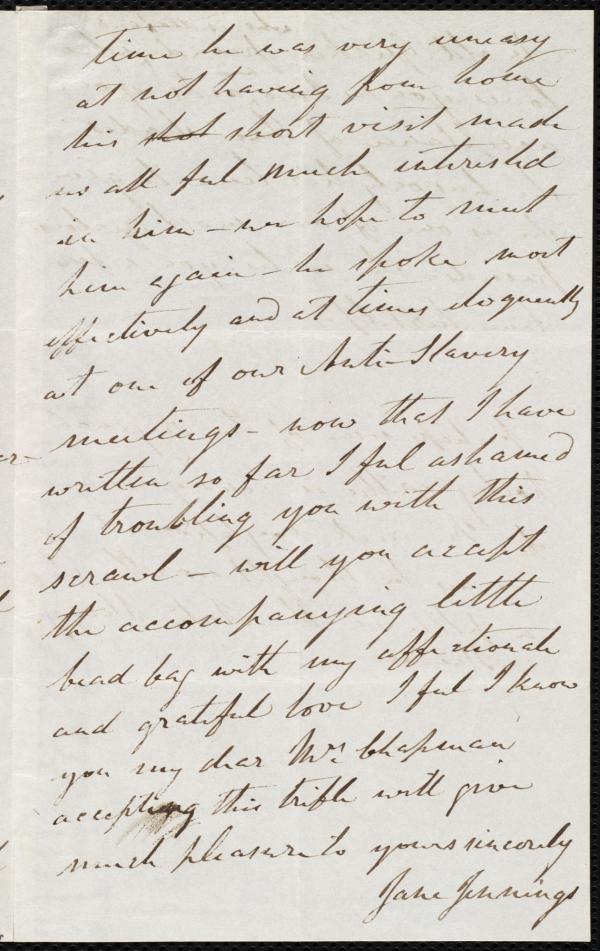 time he was very uneasy
at not having from home
his shot short visit made
us all feel much interested
in him - we hope to meet
him again - he spoke most
effectively and at times eloquently
at one of our Anti-Slavery
meetings - now that I have
written so far I feel ashamed
of troubling you with this
scrawl - will you accept
the accompanying little
bead bag with my affectionate
and grateful love I feel I know
you my dear Mrs. Chapman
accepting this trifle will give
much pleasure to yours sincerely
Jane Jennings